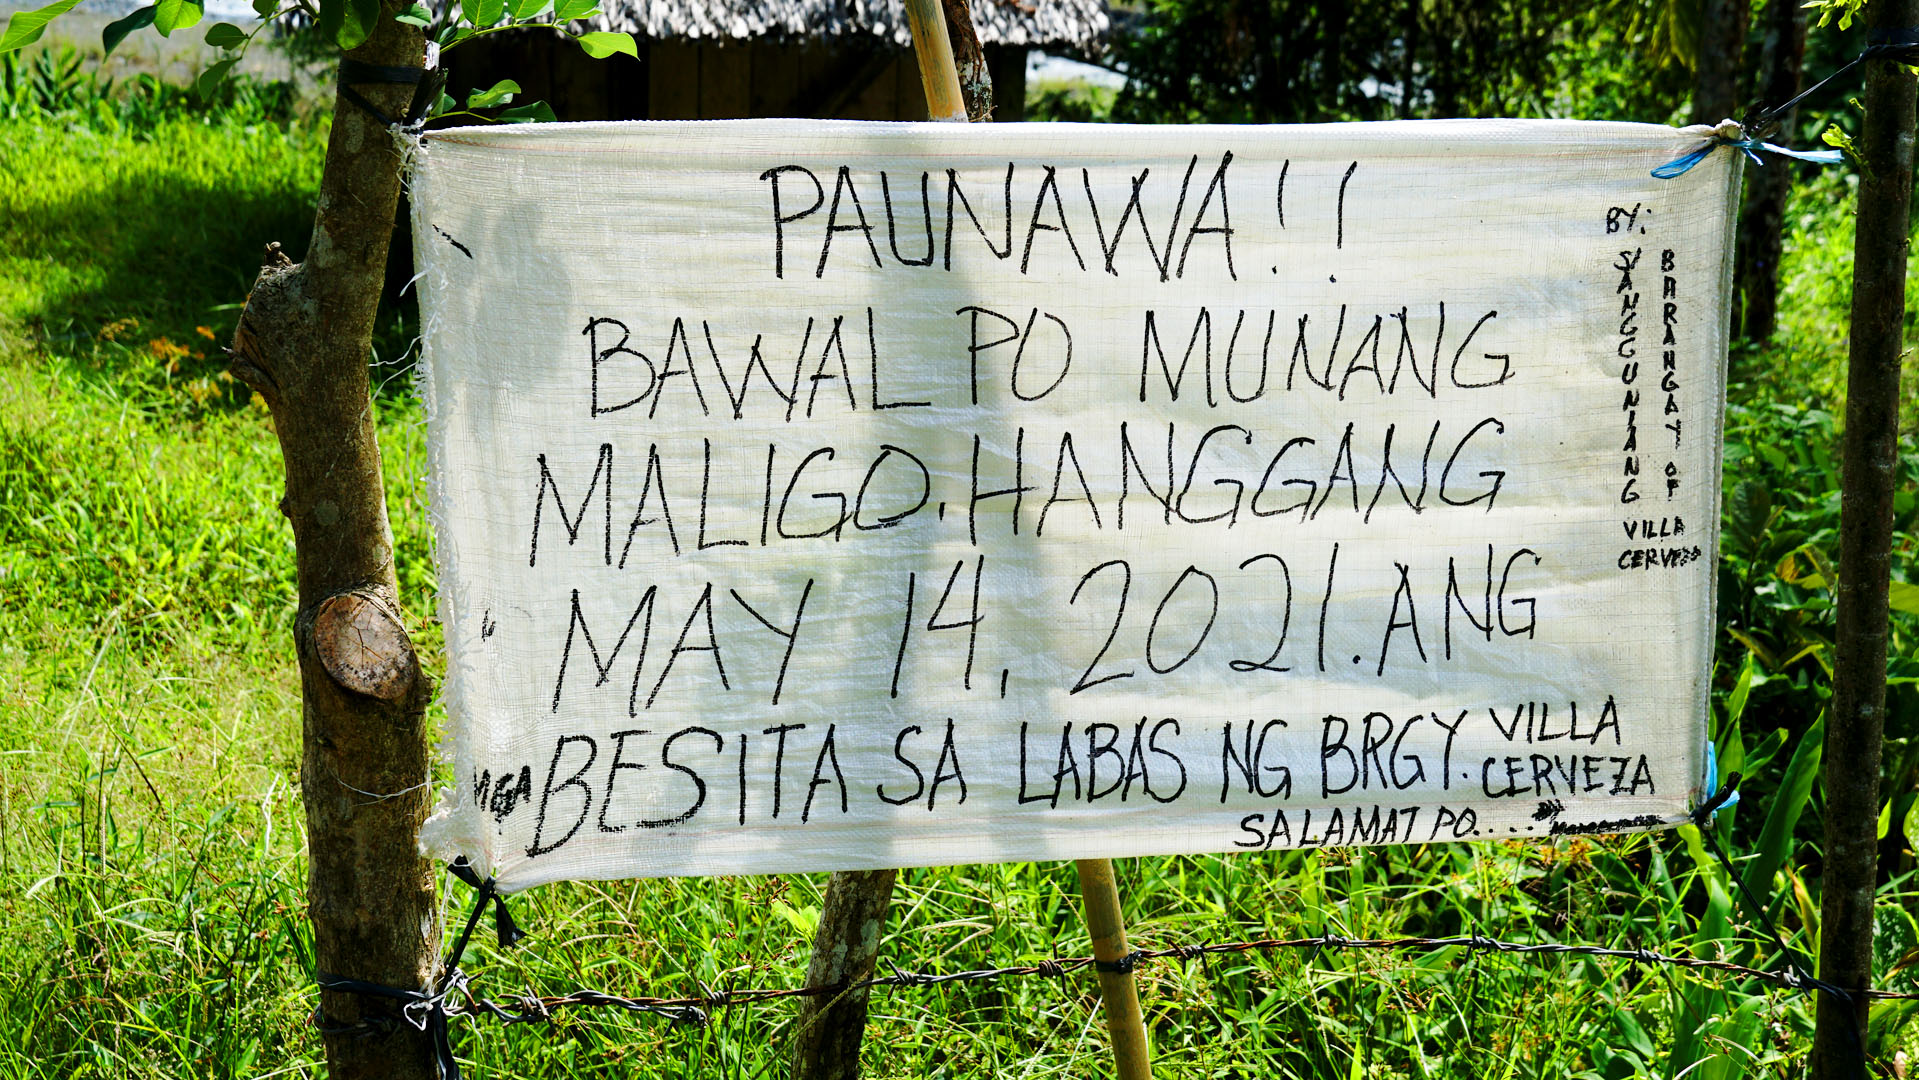 PAUNAWA!!
BAWAL PO MUNANG
MALIGO.HANGGANG
MAY 14, 2021.ANG
MGA BESITA SA LABAS NG BRGY. VILLA
CERVEZA
SALAMAT PO....
BY:
SANGGUNIANG
BARANGAY OF
VILLA
CERVEZA